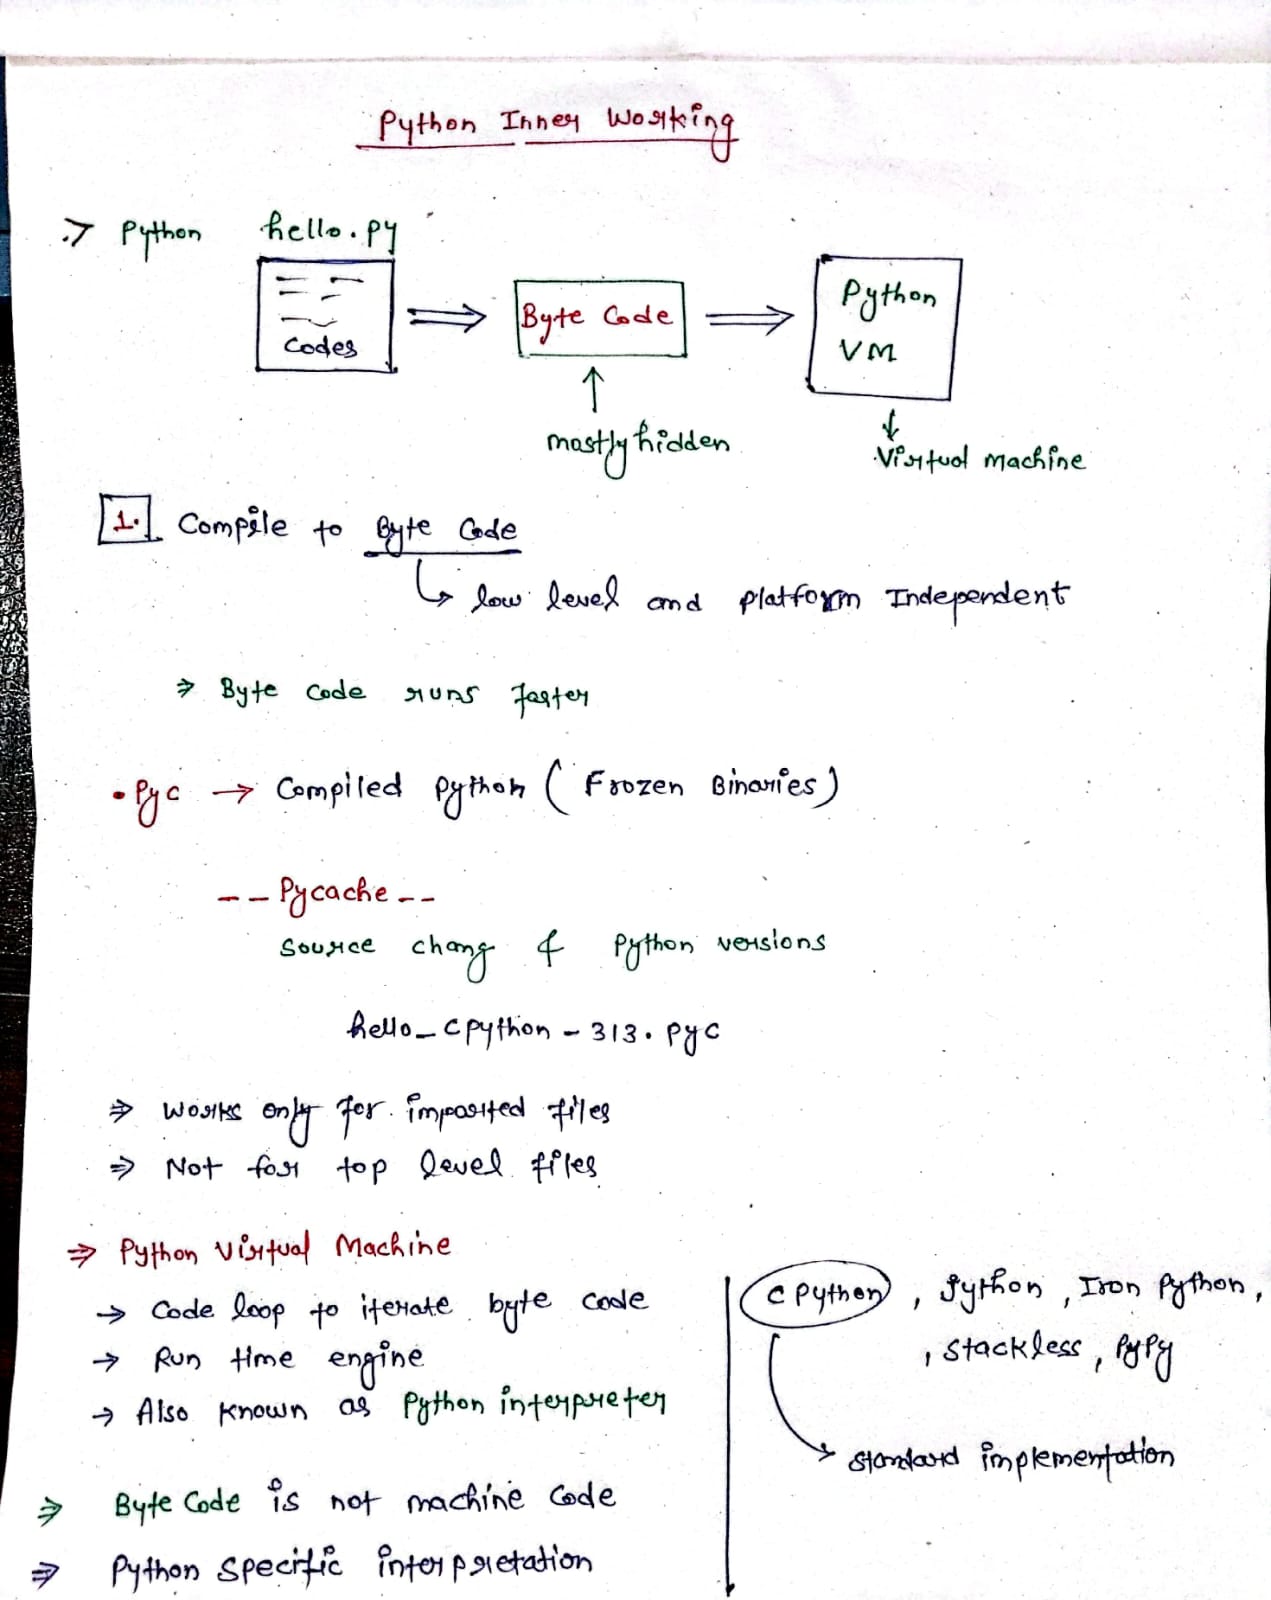 Python Inner Working
Python hello.py
Codes
Byte Code
Python
VM
mostly hidden
Virtual machine
1. Compile to Byte Code
low level and platform Independent
⇒ Byte code runs faster
.Pyc → Compiled python ( Frozen Binaries)
-- Pycache --
source chang & Python versions
hello_cpython-313.pyc
⇒ works only for imported files
⇒ Not for top level files
⇒ Python Virtual Machine
→ Code loop to iterate byte code
→ Run time engine
→ Also known as Python interpreter
⇒ Byte Code is not machine Code
⇒ Python specific interpretation
cpython, Jython, Iron Python,
, stackless, PyPy
standard implementation